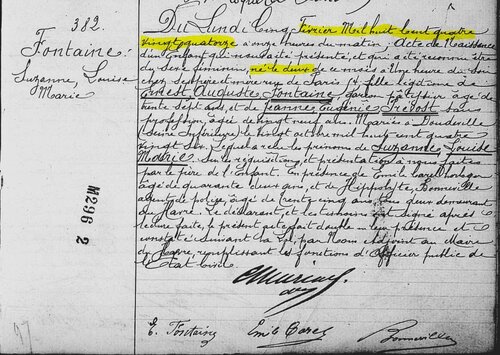 382.
Fontaine
Suzanne, Louise
Marie
Du Lundi Cinq Fevrier Mil huit Cent quatre
vingt quatorze à onze heures du matin; Acte de Naissance
d'un Enfant qui nous a été présenté, et qui a été reconnu être
du sexe féminin, né le deux de ce mois à Une heure du Soir
chez ses père et mère rue de Paris 14, fille légitime de
Ernest Auguste Fontaine garçon âgé de
trente Sept ans, et de Jeanne Eugénie Prévost sans
profession, âgée de vingt neuf ans. Mariés à Doudeville
(Seine Inférieure) le vingt octobre mil huit Cent quatre
vingt Six. Lequel a reçu les prénoms de Suzanne, Louise
Marie. Sur la réquisition et présentation à nous faites
par le père de l'Enfant. En présence de Emile Carel
âgé de quarante deux ans, et de Hippolyte, Bonneville
agent de police, âgé de trente cinq ans, tous deux demeurant
au Havre. Le déclarant, et les témoins ont signé après
lecture faite, le présent acte fait double en leur présence et
constaté suivant la Loi, par Nous Adjoint au Maire
du Havre, remplissant les fonctions d'Officier public de
l'Etat civil
M296 2
E. Fontaine Emile Carel Bonneville